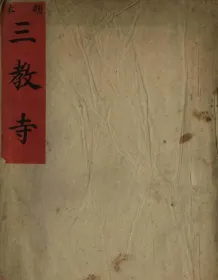 三教寺